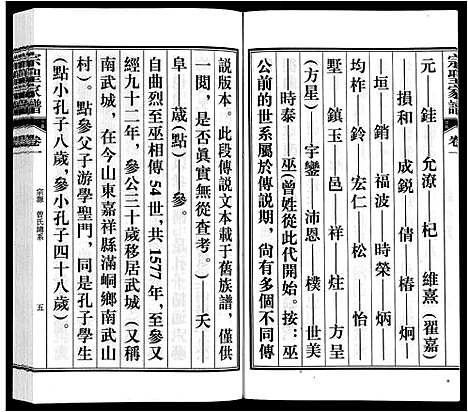 宗聖家譜 卷一
元——銈——允潦——杞——維熹（翟嘉）
——損和——成銳——倩——椿——炯——
——垣——銷——福波——時榮——炳——
均柞——鈴——宏仁——松——怡——
墅——鎮玉——邑——祥——炷——方星
（方星）——宇鑾——沛恩——樸——世美
——時泰——巫（曾姓從此代開始。按：巫
公前的世系屬於傳說期，尚有多個不同傳
說版本。此段傳説文本載于舊族譜，僅供
一閱，是否眞實無從查考。）——夭——
阜——蒧（點）——參。
自曲烈至巫相傳54世，共1577年，至參又
經九十二年，參公三十歲移居武城（又稱
南武城，在今山東嘉祥縣滿峒鄉南武山
村）。點參父子游學聖門，同是孔子學生
（點小孔子八歲，參小孔子四十八歲）。
宗聖家譜 卷一 宗聯 曾氏總系 五